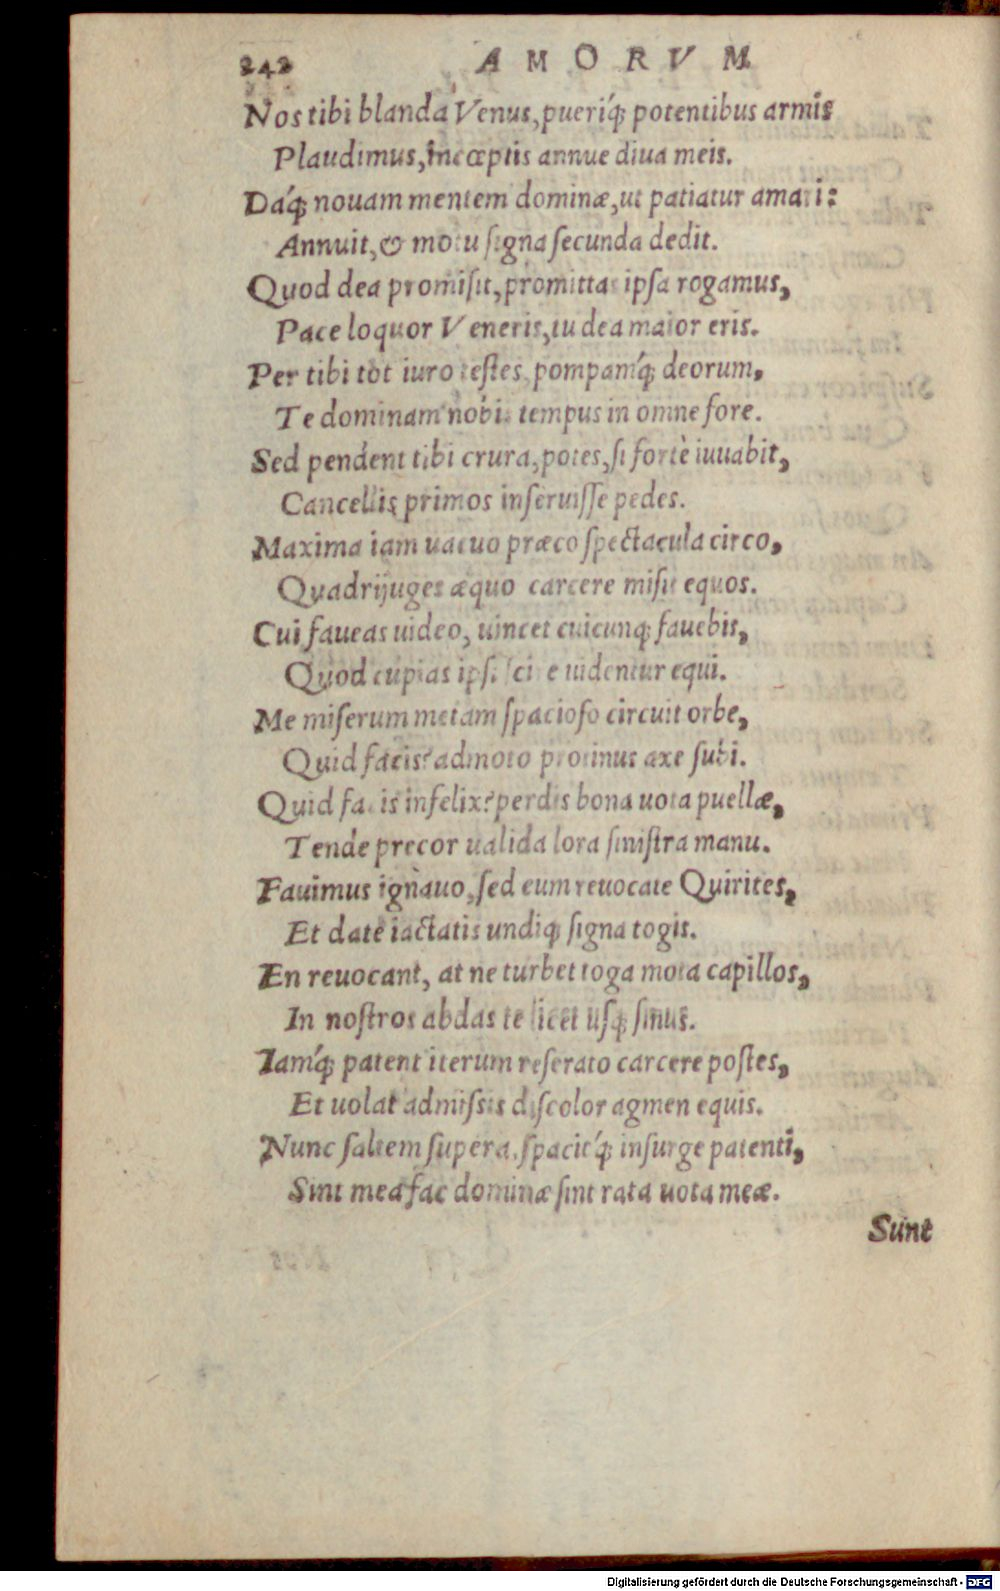 242 AMORVM
Nos tibi blanda Venus, pueriq́; potentibus armis
Plaudimus, incœptis annue diua meis.
Daq́; nouam mentem dominæ, ut patiatur amari:
Annuit, & motu signa secunda dedit.
Quod dea promisit, promittas ipsa rogamus,
Pace loquor Veneris, tu dea maior eris.
Per tibi tot iuro testes, pompamq́; deorum,
Te dominam nobis tempus in omne fore.
Sed pendent tibi crura, potes, si fortè iuuabit,
Cancellis primos inseruisse pedes.
Maxima iam uacuo præco spectacula circo,
Quadrijuges æquo carcere misit equos.
Cui faueas uideo, uincet cuicunq; fauebis,
Quod cupias ipsi scire uidentur equi.
Me miserum metam spacioso circuit orbe,
Quid facis? admoto protinus axe subi.
Quid facis infelix? perdis bona uota puellæ,
Tende precor ualida lora sinistra manu.
Fauimus ignauo, sed eum reuocate Quirites,
Et date iactatis undiq; signa togis.
En reuocant, at ne turbet toga mota capillos,
In nostros abdas te licet usq; sinus.
Iamq́; patent iterum reserato carcere postes,
Et uolat admissis discolor agmen equis.
Nunc saltem supera, spacioq́; insurge patenti,
Sint mea fac dominæ sint rata uota meæ.
Sunt
Digitalisierung gefördert durch die Deutsche Forschungsgemeinschaft - DFG